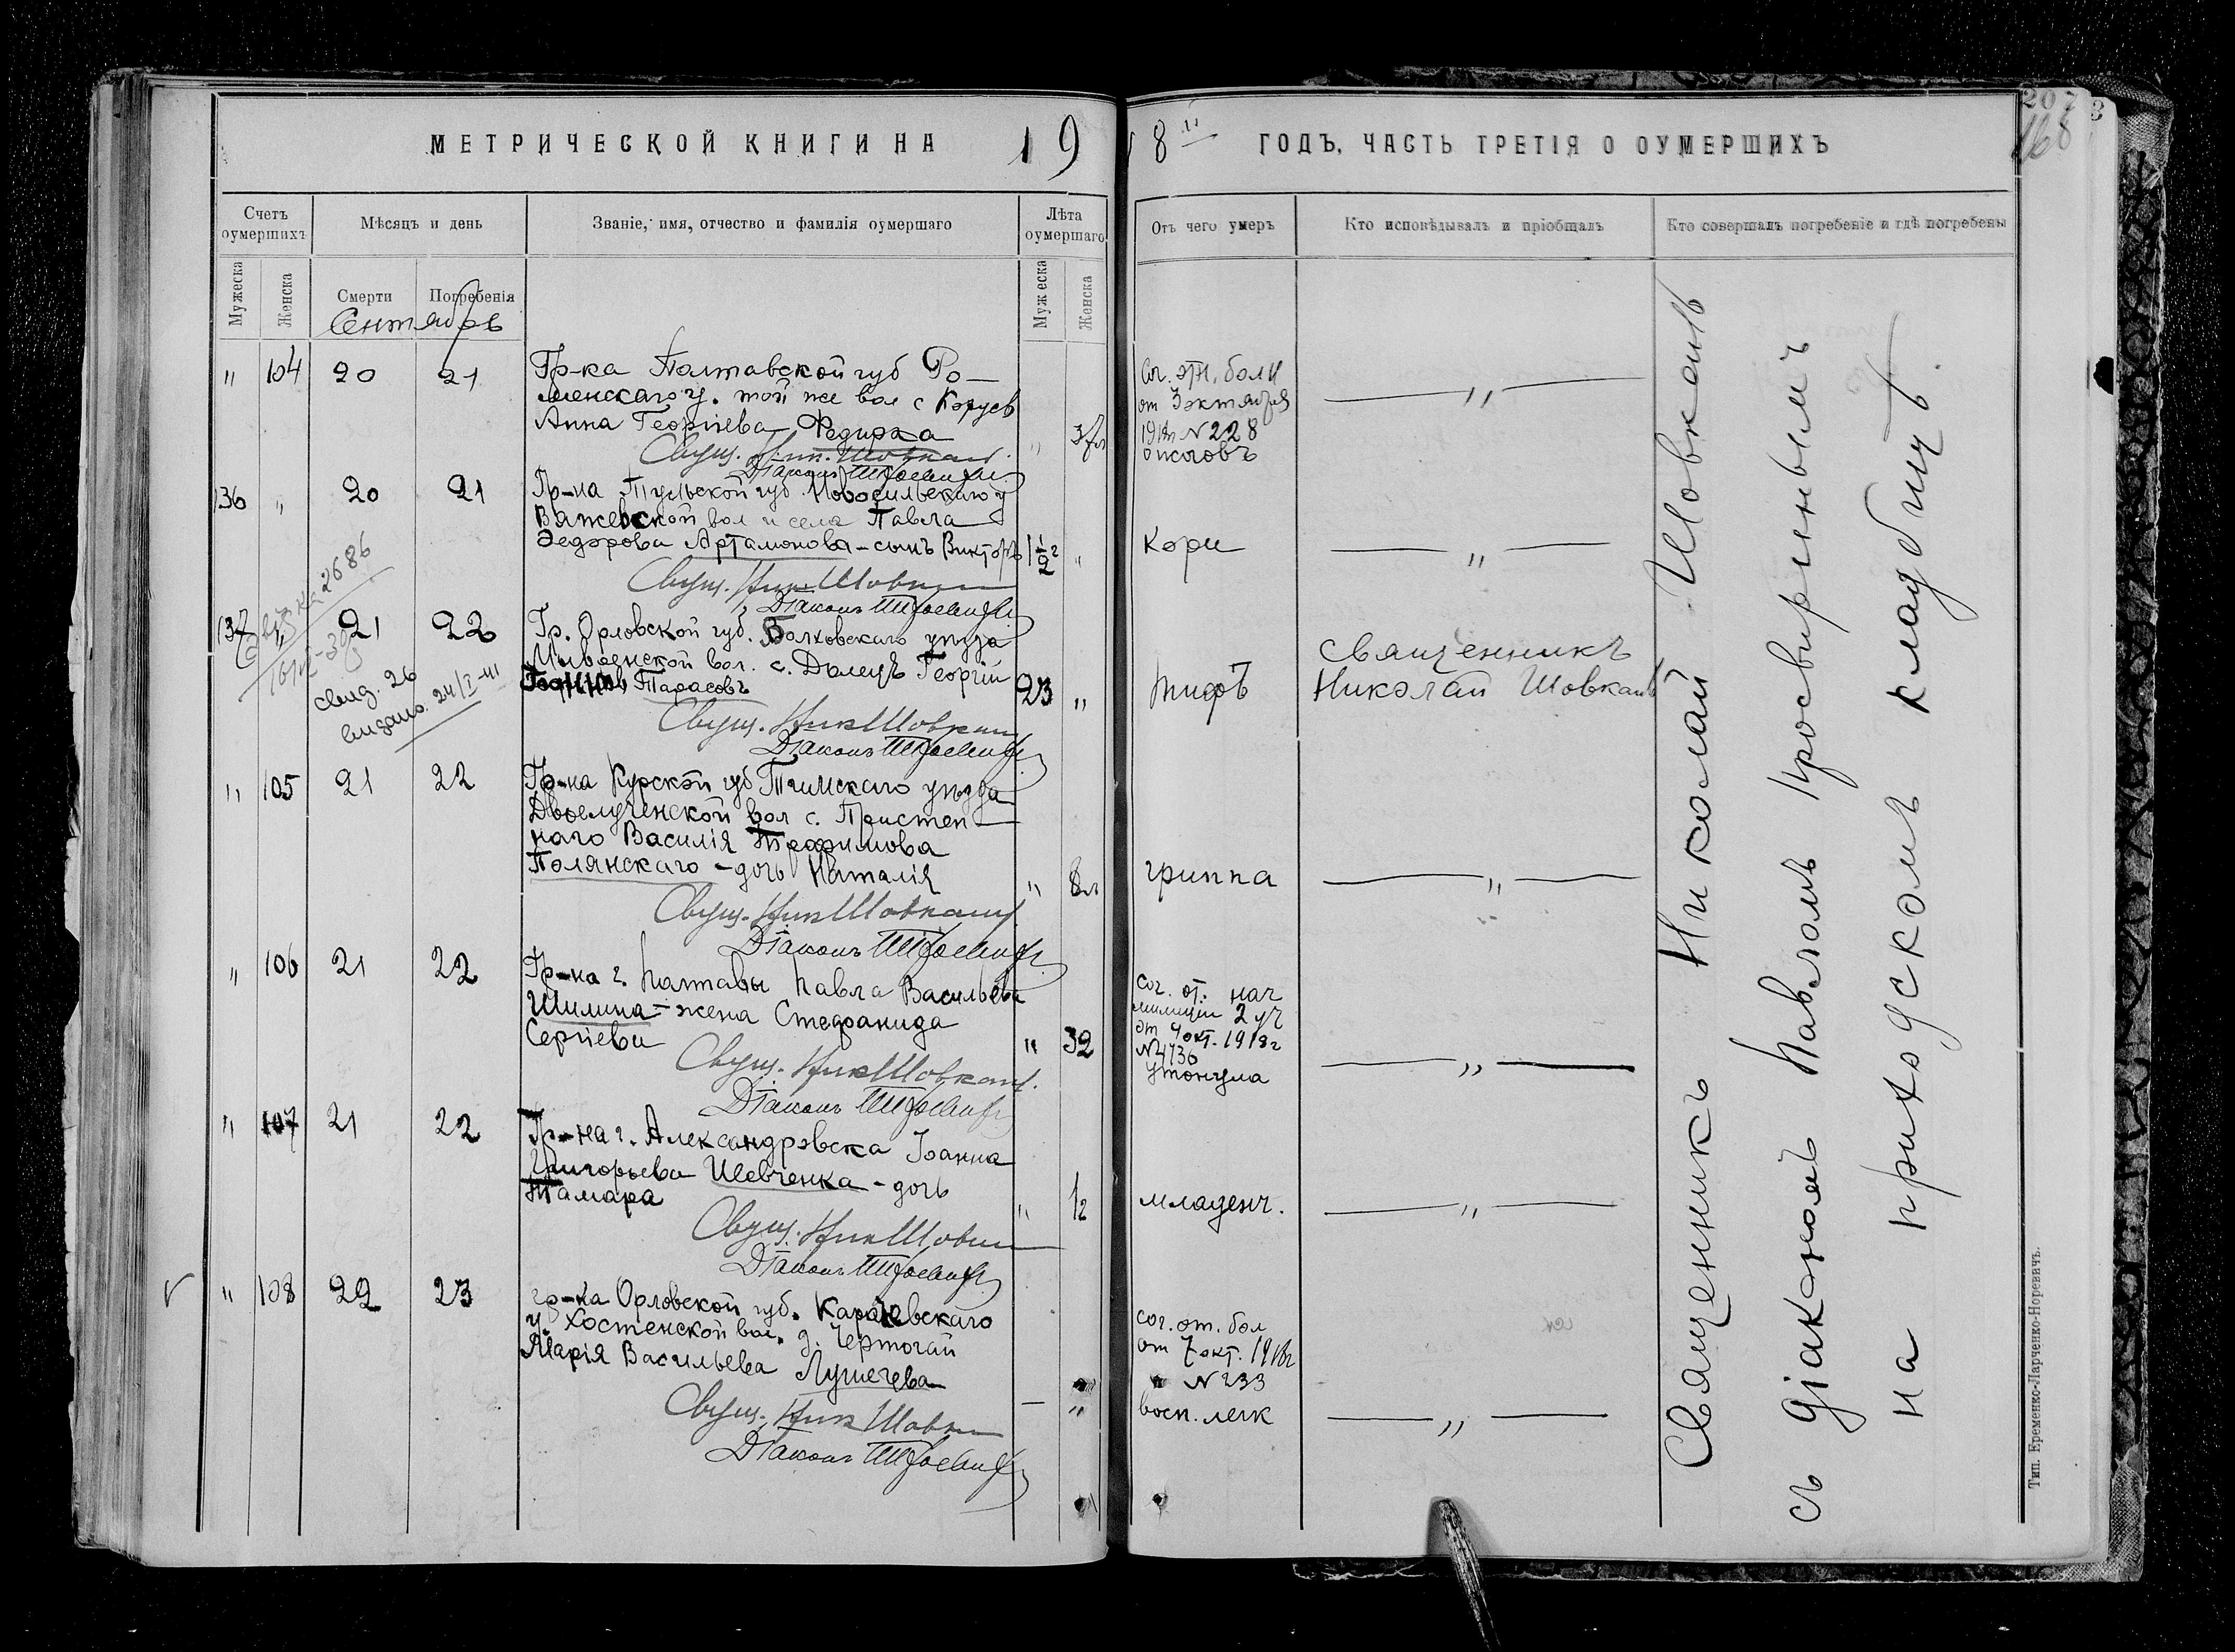 МЕТРИЧЕСКОЙ КНИГИ НА 19
Счетъ оумершихъ
Мѣсяцъ и день
Званіе, имя, отчество и фамилія оумершаго
Лѣта оумершаго
Мужеска
Женска
Смерти
Погребенія
Мужеска
Женска
Сентябрь
" 104 20 21
Гр-ка Полтавской губ Ро-
менскаго у. той же вол с
Анна Георгіева Федирха
Свящ. Ник. Шовкан
Діаконъ
136 " 20 21
Гр-на Тульской губ. Новосильскаго у
Вяжевской вол и села Павла
Федорова Артамонова - сынъ Викторъ 1 1/2 г "
Свящ. Ник. Шовкан
Діаконъ
137 " 21 22
свид. 26
видано. 24/I-41
Гр. Орловской губ. Болховскаго уѣзда
вол. с. Долецъ Георгій
Тарасовъ 23 "
Свящ. Ник Шовкан
Діаконъ
" 105 21 22
Гр-на Курской губ Тимскаго уѣзда
Двоелученской вол с. Пристен
наго Василія Трофимова
Полянскаго - дочь Наталія " 8л
Свящ. Ник Шовкан
Діаконъ
" 106 21 22
Гр-на г. Полтавы Павла Васильева
Шилина - жена Стефанида
Сергіева " 32
Свящ. Ник Шовкан
Діаконъ
" 107 21 22
Гр-на г. Александровска Іоанна
Григорьева Шевченка - дочь
Тамара " 1/2
Свящ. Ник Шовкан
Діаконъ
" 108 22 23
гр-ка Орловской губ. Карачевскаго
у. Хостенской вол. д. Чертогай
Марія Васильева Лушечева
— "
Свящ. Ник Шовкан
Діаконъ
8 й ГОДЪ, ЧАСТЬ ТРЕТІЯ О ОУМЕРШИХЪ
207
168
Отъ чего умеръ
Кто исповѣдывалъ и пріобщалъ
Кто совершалъ погребеніе и гдѣ погребены
Сог. отн. болн
от 3 октября
1918г N 228
ожоговъ
— " —
кори
— " —
тифъ
Священникъ
Николай Шовкань
гриппа
— " —
сог. от. нач
милиции 2 уч
от 4 окт. 1918г
N 4736
утонула
— " —
младенч.
— " —
сог. от. бол
от 7 окт. 1918г
N 233
восп. легк
— " —
Священникъ Николай Шовкань
съ діакономъ Павломъ
на приходскомъ кладбищѣ.
Тип. Еременко-Ларченко-Норевичъ.